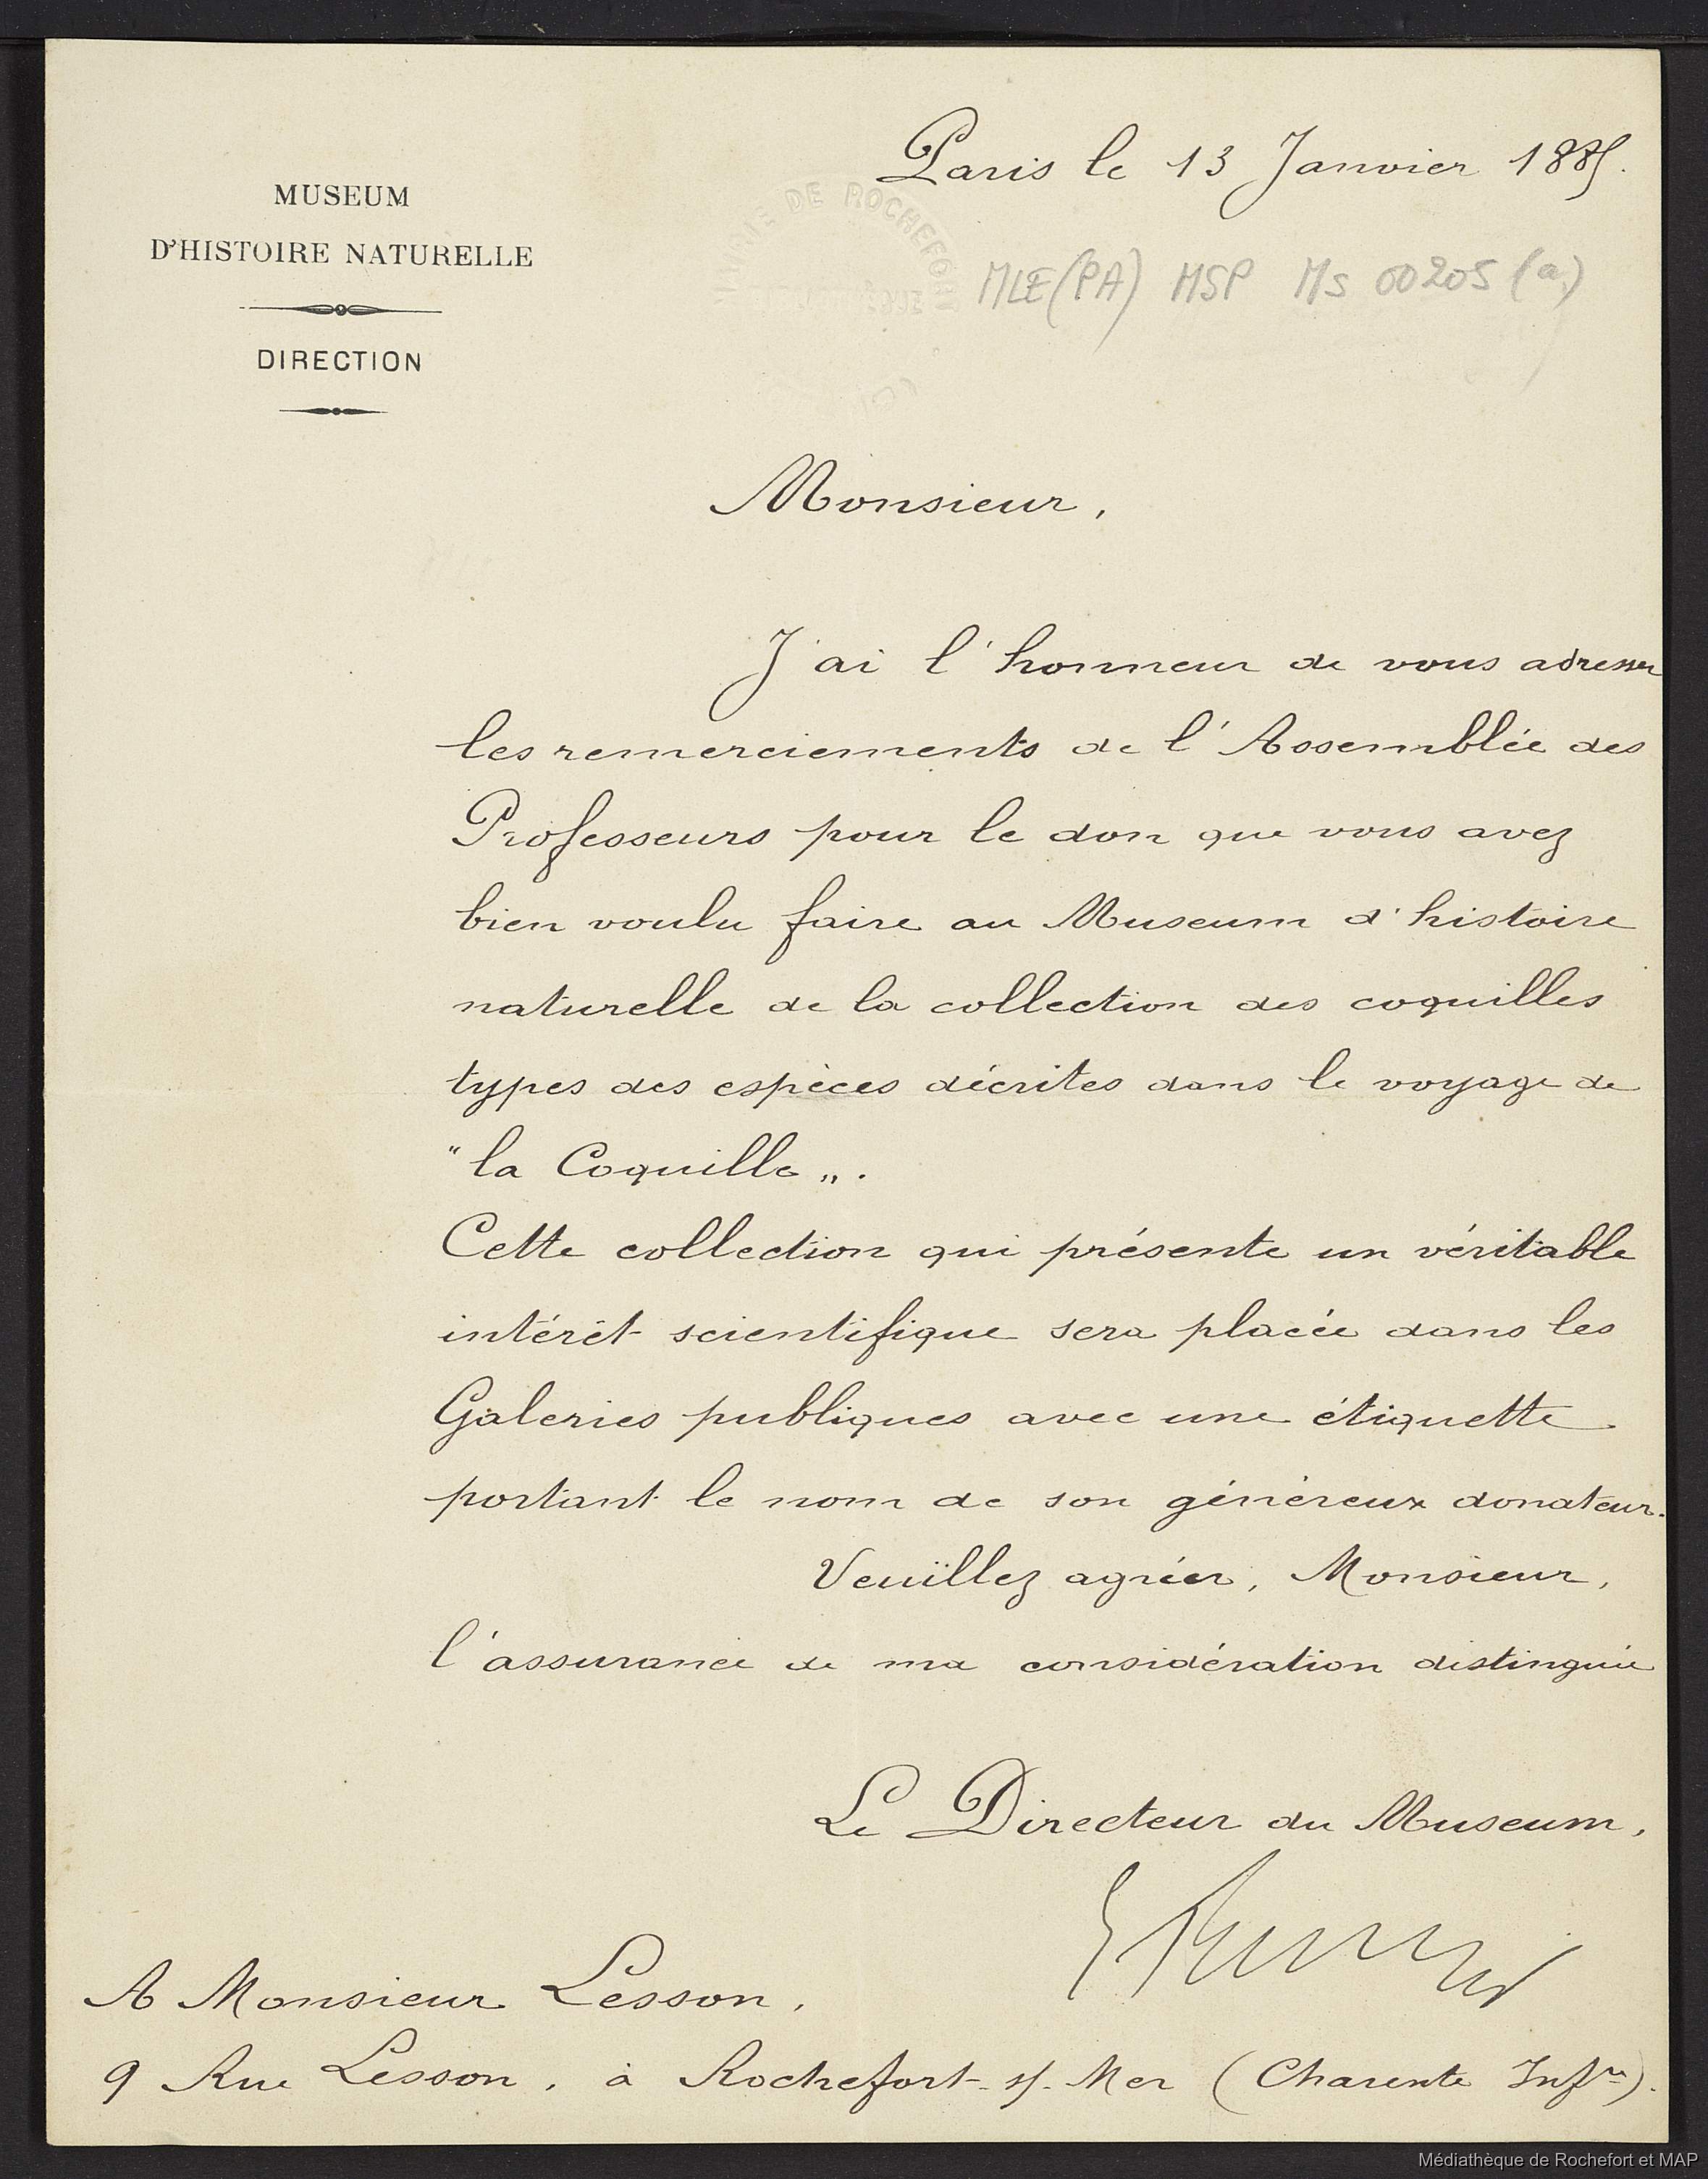 Paris le 13 Janvier 1885.
MUSEUM
D'HISTOIRE NATURELLE
DIRECTION
DE ROCHEFORT
MLE(PA) MSP Ms 00205 (a)
Monsieur,
J'ai l'honneur de vous adresser
les remerciements de l'Assemblée des
Professeurs pour le don que vous avez
bien voulu faire au Museum d'histoire
naturelle de la collection des coquilles
types des espèces décrites dans le voyage de
"la Coquille".
Cette collection qui présente un véritable
intérêt scientifique sera placée dans les
Galeries publiques avec une étiquette
portant le nom de son généreux donateur.
Veuïllez agréer, Monsieur,
l'assurance de ma considération distinguée
Le Directeur du Museum,
A Monsieur Lesson,
9 Rue Lesson, à Rochefort-s/-Mer (Charente Infre).
Médiathèque de Rochefort et MAP